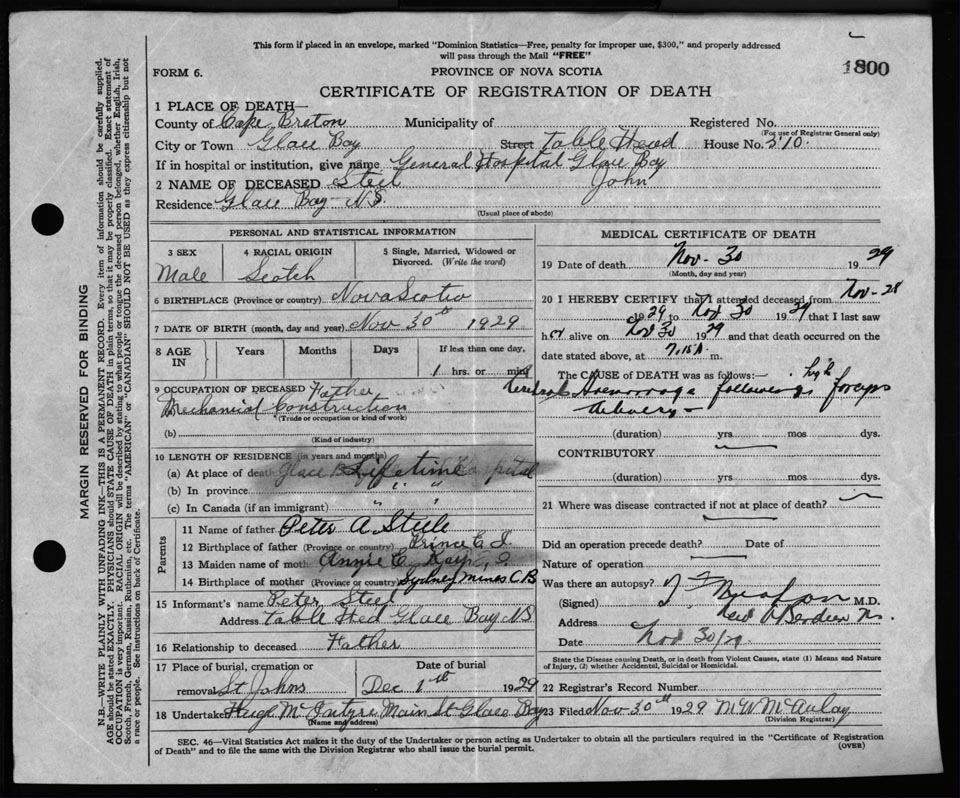 This form if placed in an envelope, marked "Dominion Statistics—Free, penalty for improper use, $300," and properly addressed
will pass through the Mail "FREE"
1800
FORM 6.
PROVINCE OF NOVA SCOTIA
CERTIFICATE OF REGISTRATION OF DEATH
MARGIN RESERVED FOR BINDING
N.B.—WRITE PLAINLY WITH UNFADING INK—THIS IS A PERMANENT RECORD. Every item of information should be carefully supplied.
AGE should be stated EXACTLY. PHYSICIANS should STATE CAUSE OF DEATH in plain terms, so that it may be properly classified. Exact statement of
OCCUPATION is very important. RACIAL ORIGIN will be described by stating to what people or tongue the deceased person belonged, whether English, Irish,
Scotch, French, German, Russian, Ruthenian, etc. The terms "AMERICAN" or "CANADIAN" SHOULD NOT BE USED as they express citizenship but not
a race or people. See instructions on back of Certificate.
1 PLACE OF DEATH—
County of Cape Breton Municipality of Registered No.
(For use of Registrar General only)
City or Town Glace Bay Street Table Head House No. 310.
If in hospital or institution, give name General Hospital Glace Bay
2 NAME OF DECEASED Steel John
Residence Glace Bay N.S.
(Usual place of abode)
PERSONAL AND STATISTICAL INFORMATION
3 SEX 4 RACIAL ORIGIN 5 Single, Married, Widowed or
Divorced. (Write the word)
Male Scotch
6 BIRTHPLACE (Province or country) Nova Scotia
7 DATE OF BIRTH (month, day and year) Nov 30th 1929
8 AGE IN Years Months Days If less than one day,
1 hrs. or min
9 OCCUPATION OF DECEASED Father
Mechanical Construction
(Trade or occupation or kind of work)
(b)
(Kind of industry)
10 LENGTH OF RESIDENCE (in years and months)
(a) At place of death Life time
(b) In province " "
(c) In Canada (if an immigrant) " "
Parents
11 Name of father Peter A. Steele
12 Birthplace of father (Province or country) Prince E. I.
13 Maiden name of mother Annie C.
14 Birthplace of mother (Province or country) Sydney Mines C B
15 Informant's name Peter Steel
Address Table Hed Glace Bay NS
16 Relationship to deceased Father
17 Place of burial, cremation or Date of burial
removal St Johns Dec 1st 1929
18 Undertaker Hugh McIntyre Main St Glace Bay
(Name and address)
MEDICAL CERTIFICATE OF DEATH
19 Date of death Nov - 30 1929
(Month, day and year)
20 I HEREBY CERTIFY that I attended deceased from Nov - 28
1929 to Nov 30 1929 that I last saw
h er alive on Nov 30 1929 and that death occurred on the
date stated above, at 7.15 A m.
The CAUSE of DEATH was as follows:
Cerebral Haemorrage following high forceps
delivery -
(duration) yrs mos dys.
CONTRIBUTORY
(duration) yrs. mos. dys.
21 Where was disease contracted if not at place of death?
Did an operation precede death? Date of
Nature of operation
Was there an autopsy?
(Signed) M.D.
Address New Aberdeen N.S.
Date Nov 30/29
State the Disease causing Death, or in death from Violent Causes, state (1) Means and Nature
of Injury, (2) whether Accidental, Suicidal or Homicidal.
22 Registrar's Record Number
23 Filed Nov 30th 1929 M W McAulay
(Division Registrar)
SEC. 46—Vital Statistics Act makes it the duty of the Undertaker or person acting as Undertaker to obtain all the particulars required in the "Certificate of Registration
of Death" and to file the same with the Division Registrar who shall issue the burial permit.
(OVER)